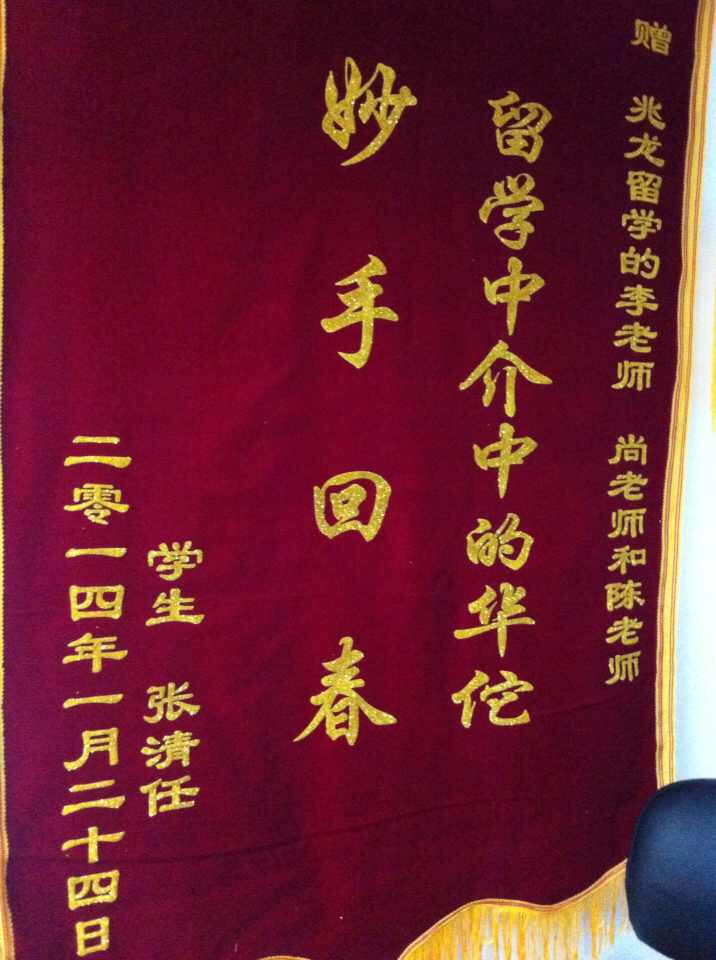 赠 兆龙留学的李老师 尚老师和陈老师
留学中介中的华佗
妙手回春
学生 张清任
二零一四年一月二十四日